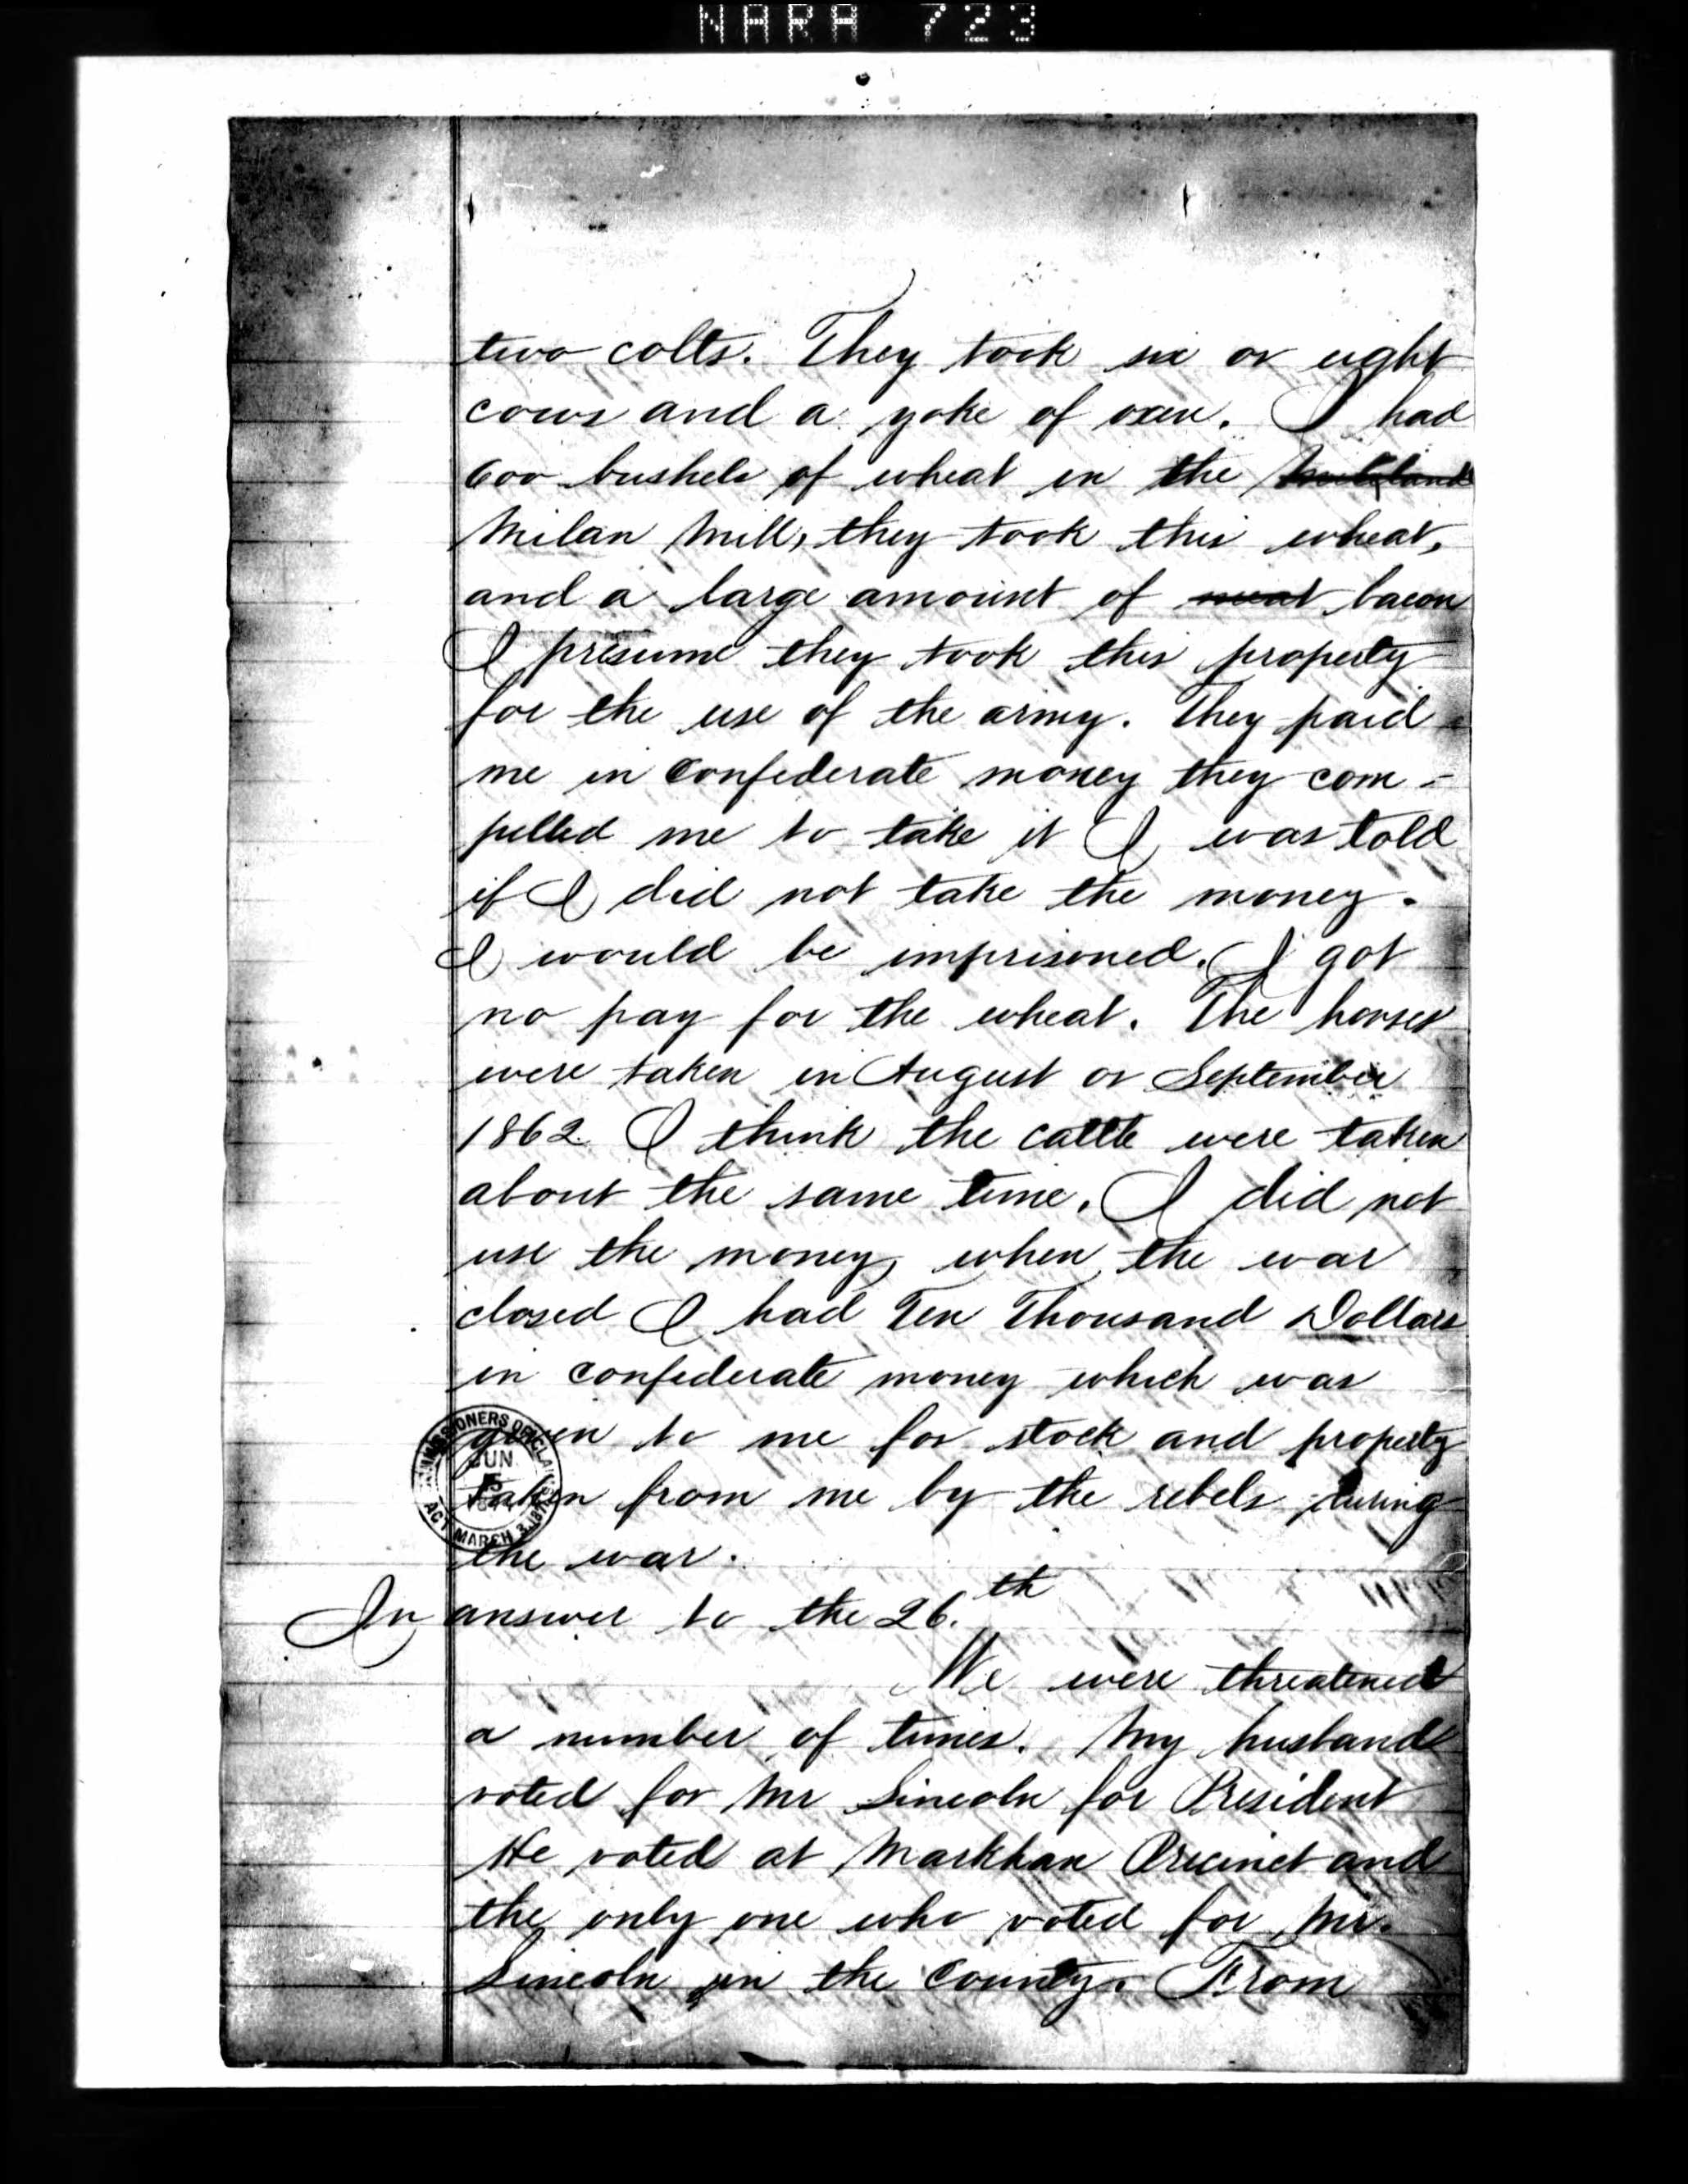 NARA 723
two colts. They took six or eight
cows and a yoke of oxen. I had
600 bushels of wheat in the
Milan Mill, they took this wheat,
and a large amount of meat bacon
I presume they took this property
for the use of the army. They paid
me in Confederate money they com-
pelled me to take it I was told
if I did not take the money.
I would be imprisoned. I got
no pay for the wheat. The horses
were taken in August or September
1862. I think the cattle were taken
about the same time. I did not
use the money, when the war
closed I had Ten Thousand Dollars
in confederate money which was
given to me for stock and property
taken from me by the rebels during
the war.
In answer to the 26.th
We were threatened
a number of times. My husband
voted for Mr Lincoln for President
He voted at Markham Precinct and
the only one who voted for Mr.
Lincoln in the County. From
COMMISSIONERS OF CLAIMS
JUN
5
ACT MARCH 3, 1871